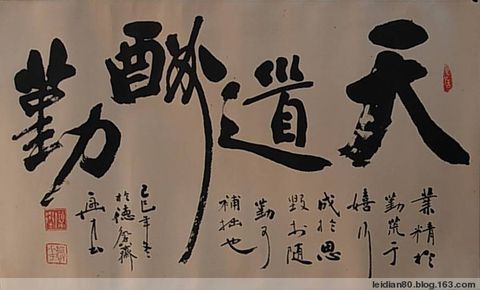 天道酬勤
業精於
勤荒于
嬉行
成於思
毀於随
勤可
補拙也
己巳年冬
於德馨齋
leidian80.blog.163.com